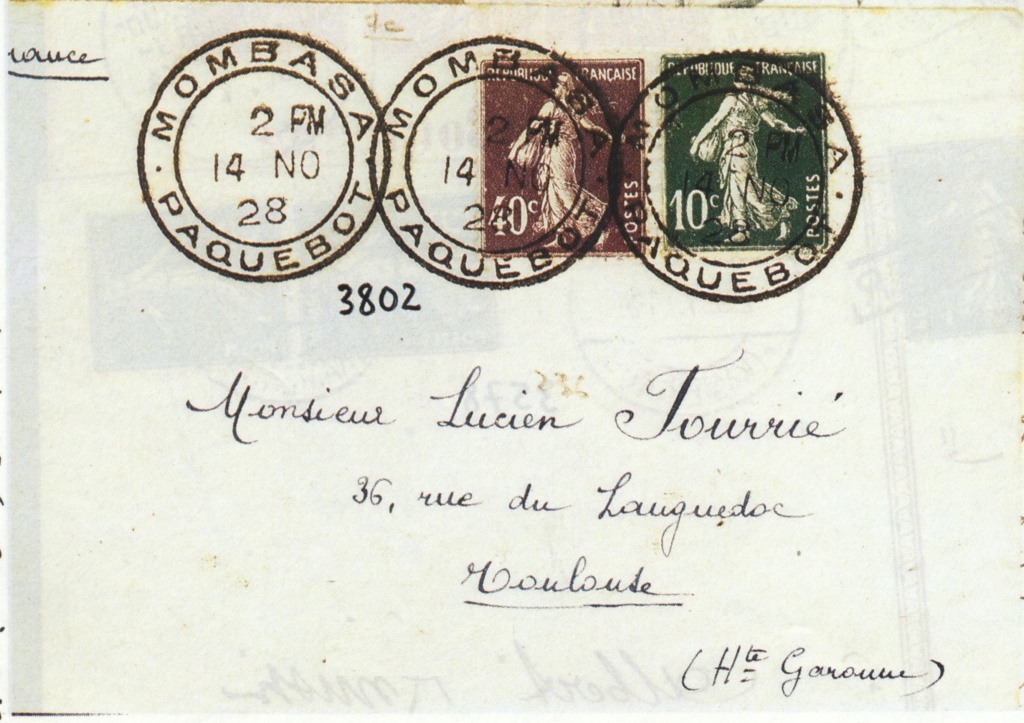 MOMBASA
2 PM
14 NO
28
PAQUEBOT
MOMBASA
2 PM
14 NO
28
PAQUEBOT
RÉPUBLIQUE FRANÇAISE
40c
POSTES
MOMBASA
2 PM
14 NO
28
PAQUEBOT
RÉPUBLIQUE FRANÇAISE
10c
POSTES
3802
Monsieur Lucien Tourrié
36, rue du Languedoc
Toulouse
(Hte Garonne)